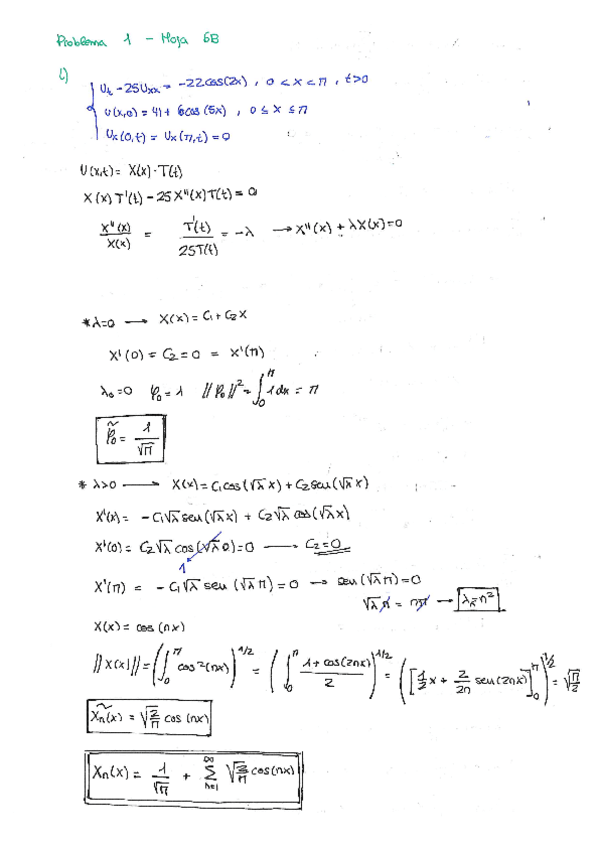 Problema 1 - Hoja 6B
i)
U_t - 25U_xx = -22cos(2x) , 0 < x < π , t>0
U(x,0) = 41+ 6cos(5x) , 0 ≤ x ≤ π
U_x(0,t) = U_x(π,t) = 0
U(x,t) = X(x)·T(t)
X(x)T'(t) - 25X''(x)T(t) = 0
X''(x)/X(x) = T'(t)/25T(t) = -λ → X''(x) + λX(x)=0
*λ=0 → X(x) = C₁ + C₂x
X'(0) = C₂ = 0 = X'(π)
λ₀=0 φ₀ = 1 ||φ₀||² = ∫₀^π 1dx = π
φ̃₀ = 1/√π
* λ>0 → X(x) = C₁cos(√λ x) + C₂sen(√λ x)
X'(x) = -C₁√λ sen(√λ x) + C₂√λ cos(√λ x)
X'(0) = C₂√λ cos(√λ 0) = 0 → C₂=0
1
X'(π) = -C₁√λ sen (√λ π) = 0 → sen(√λ π) = 0
√λ π = nπ → λₙ=n²
X(x) = cos (nx)
||X(x)|| = (∫₀^π cos²(nx))^1/2 = (∫₀^π 1+cos(2nx)/2)^1/2 = ([1/2 x + 2/2n sen(2nx)]₀^π)^1/2 = √π/2
X̃ₙ(x) = √2/π cos (nx)
Xₙ(x) = 1/√π + ∑_{n=1}^∞ √2/π cos(nx)